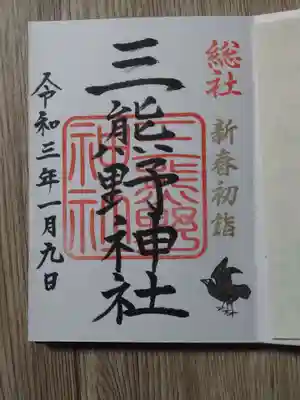 総社
新春初詣
三熊野神社
三熊野
神社
令和三年一月九日